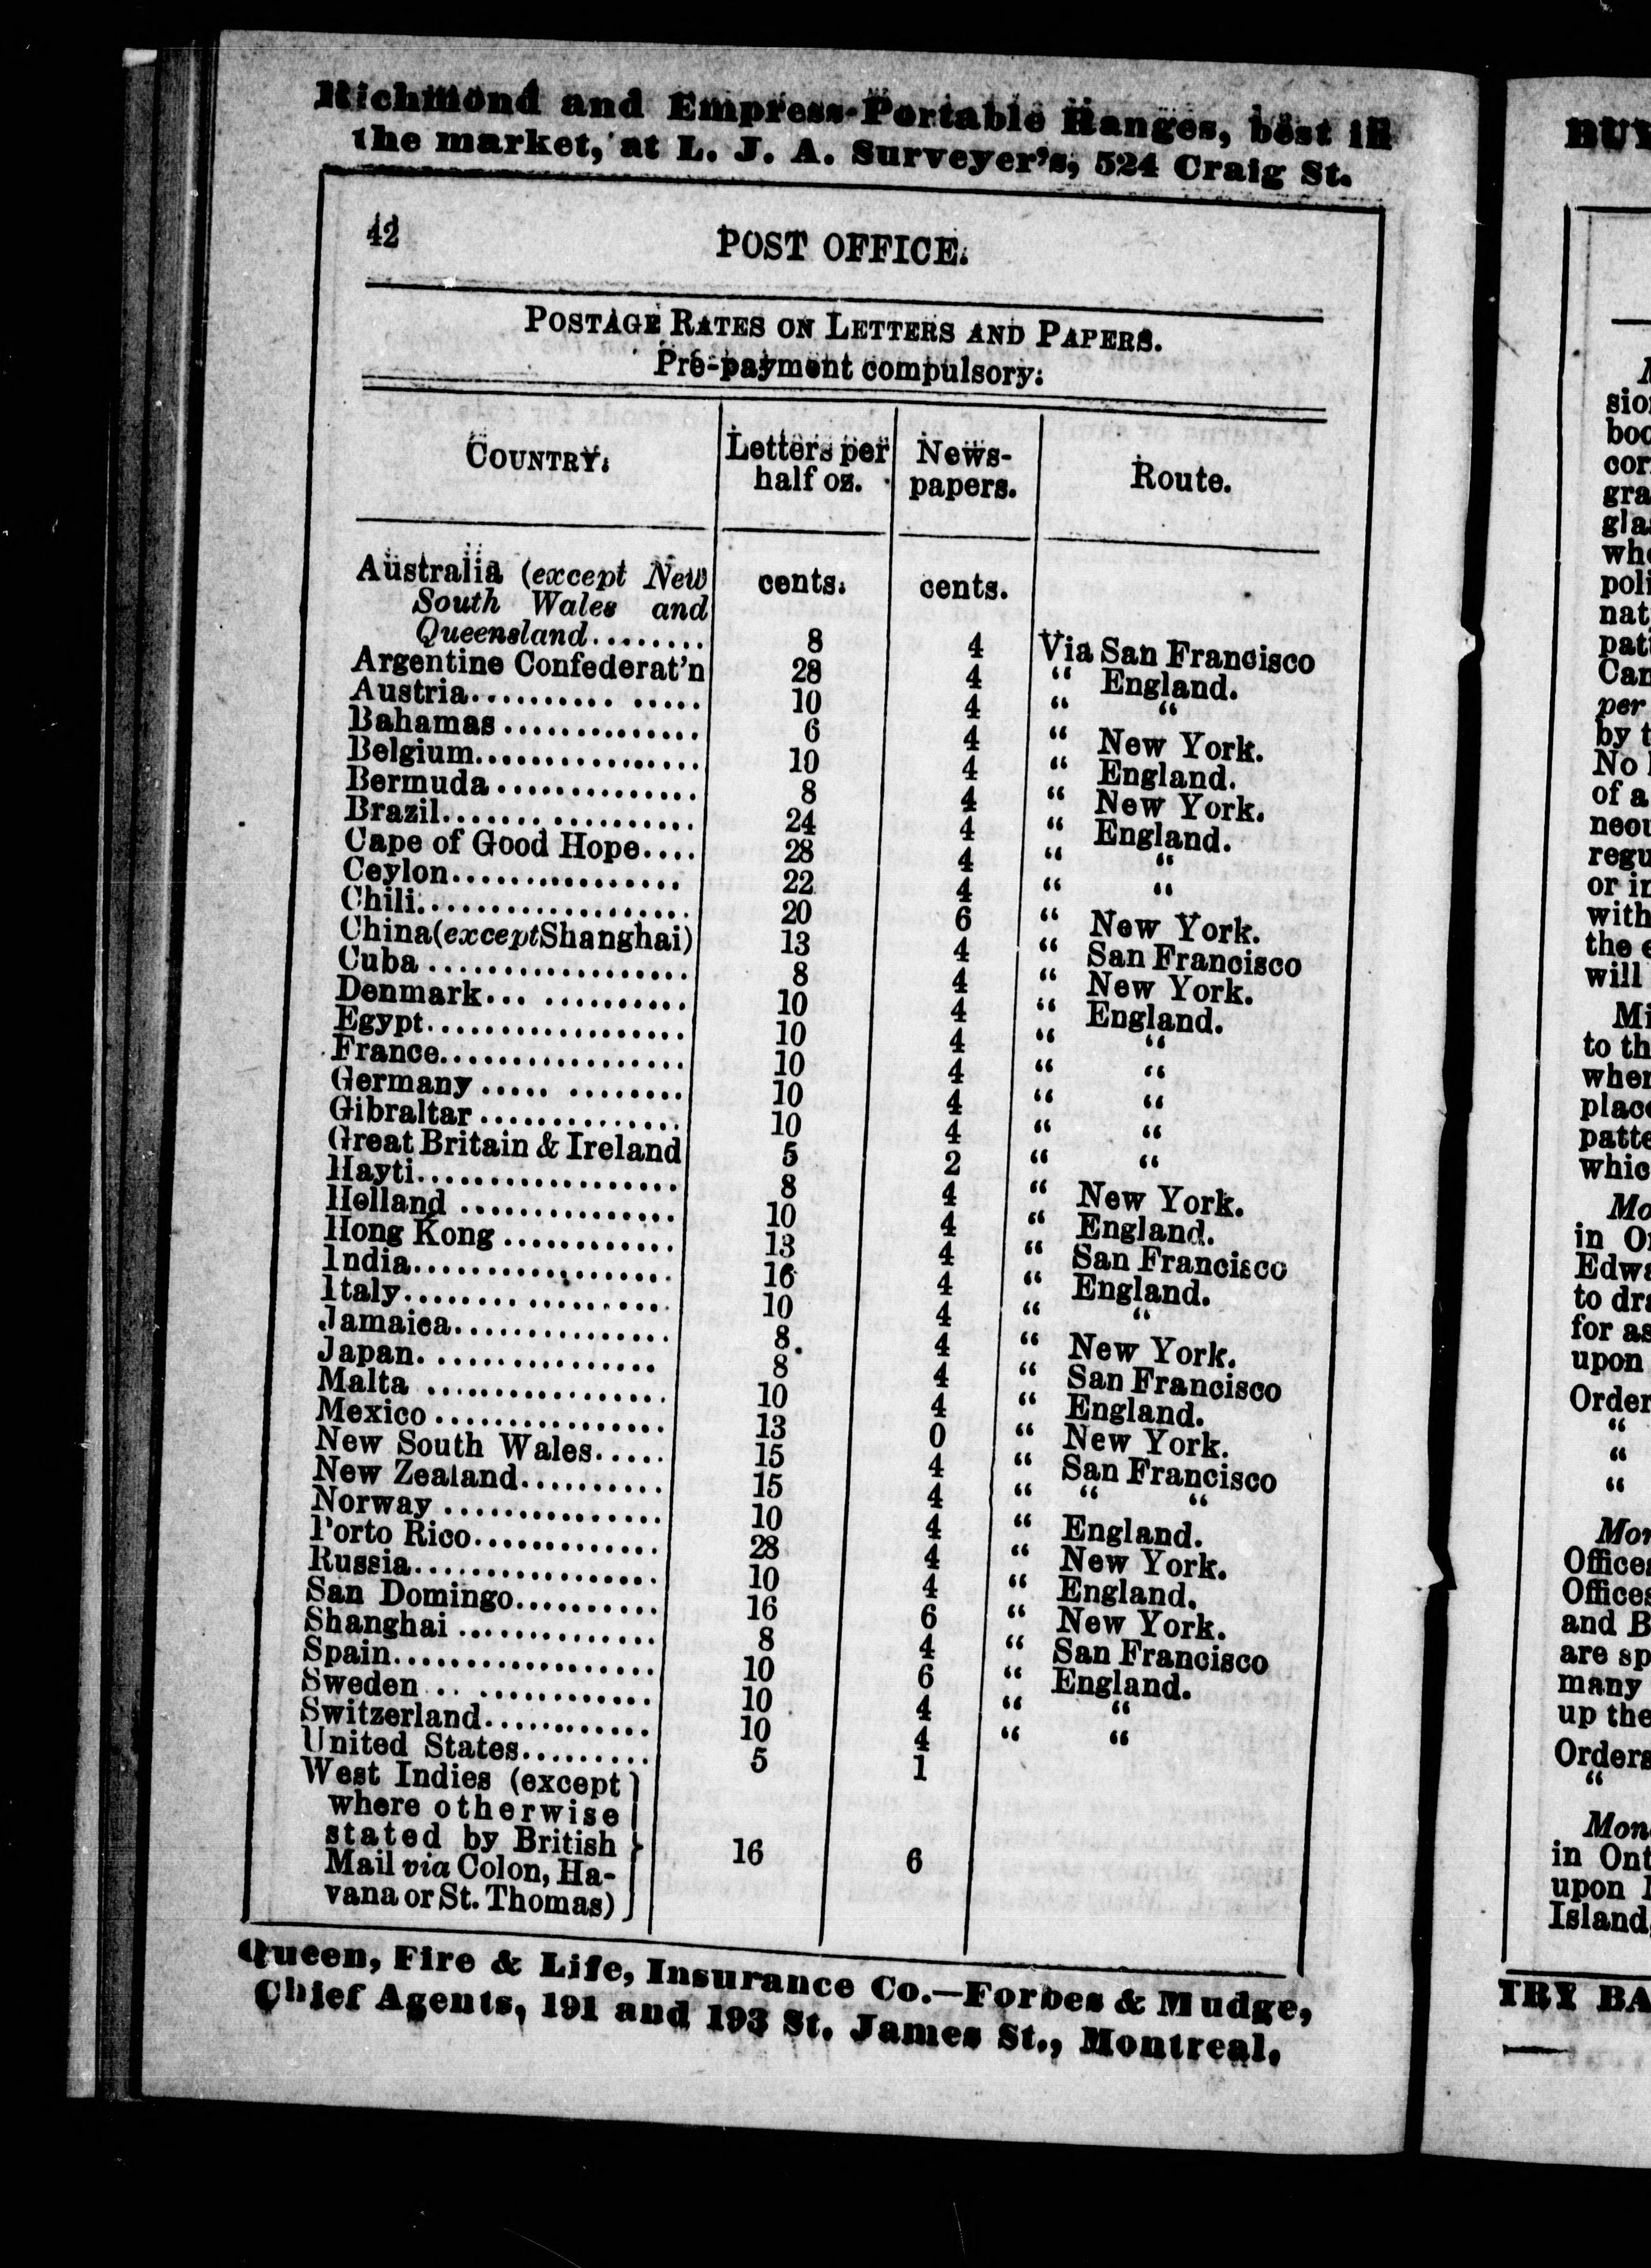 Richmond and Empress-Portable Ranges, best in
the market, at L. J. A. Surveyer's, 524 Craig St.
42
POST OFFICE.
POSTAGE RATES ON LETTERS AND PAPERS.
Pre-payment compulsory.
COUNTRY. Letters per half oz. News-papers. Route.
Australia (except New cents. cents.
South Wales and
Queensland........ 8 4 Via San Francisco
Argentine Confederat'n 28 4 " England.
Austria.......... ..... 10 4 " "
Bahamas.............. 6 4 " New York.
Belgium................ 10 4 " England.
Bermuda.............. 8 4 " New York.
Brazil....... .......... 24 4 " England.
Cape of Good Hope.... 28 4 " "
Ceylon................ 22 4 " "
Chili................... 20 6 " New York.
China(exceptShanghai) 13 4 " San Francisco
Cuba.................. 8 4 " New York.
Denmark... .......... 10 4 " England.
Egypt.................. 10 4 " "
France................. 10 4 " "
Germany..... ........ 10 4 " "
Gibraltar.............. 10 4 " "
Great Britain & Ireland 5 2 " "
Hayti.................. 8 4 " New York.
Holland............... 10 4 " England.
Hong Kong............ 13 4 " San Francisco
India.................. 16 4 " England.
Italy........ .......... 10 4 " "
Jamaica............... 8 4 " New York.
Japan................. 8 4 " San Francisco
Malta................. 10 4 " England.
Mexico................ 13 0 " New York.
New South Wales..... 15 4 " San Francisco
New Zealand.......... 15 4 " " "
Norway............... 10 4 " England.
Porto Rico............. 28 4 " New York.
Russia................. 10 4 " England.
San Domingo.......... 16 6 " New York.
Shanghai.............. 8 4 " San Francisco
Spain.................. 10 6 " England.
Sweden.. ............ 10 4 " "
Switzerland............ 10 4 " "
United States......... 5 1
West Indies (except
where otherwise
stated by British 16 6
Mail via Colon, Ha-
vana or St. Thomas)
Queen, Fire & Life, Insurance Co.—Forbes & Mudge,
Chief Agents, 191 and 193 St. James St., Montreal.
per
by t
No
of a
regu
with
the
will
to th
in O
to dr
for as
upon
Order
"
"
"
Offices
Offices
and B
are sp
many
up the
Orders
"
in Ont
upon
Island
TRY BA